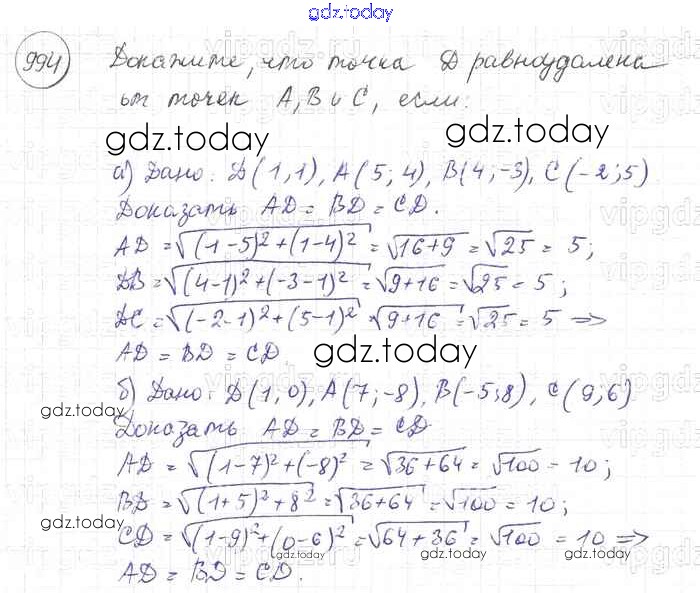 gdz.today
994 Докажите, что точка D равноудалена
от точек A, B и C, если:
gdz.today gdz.today
а) Дано: D(1,1), A(5;4), B(4;-3), C(-2;5)
Доказать AD = BD = CD.
AD = √((1-5)²+(1-4)²) = √(16+9) = √25 = 5;
DB = √((4-1)²+(-3-1)²) = √(9+16) = √25 = 5;
DC = √((-2-1)²+(5-1)²) = √(9+16) = √25 = 5 =>
AD = BD = CD. gdz.today
б) Дано: D(1,0), A(7;-8), B(-5;8), C(9;6)
gdz.today gdz.today
Доказать AD = BD = CD
AD = √((1-7)²+(-8)²) = √(36+64) = √100 = 10;
BD = √((1+5)²+8²) = √(36+64) = √100 = 10;
CD = √((1-9)²+(0-6)²) = √(64+36) = √100 = 10 =>
gdz.today gdz.today
AD = BD = CD.